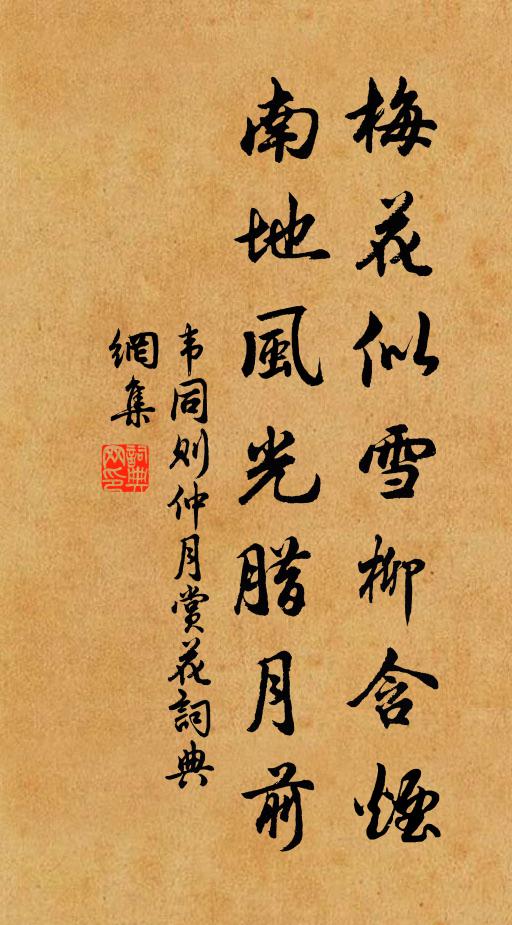 梅花似雪柳含煙
南地風光腊月前
韦同则仲月赏花詞典
網集
詞典
网印